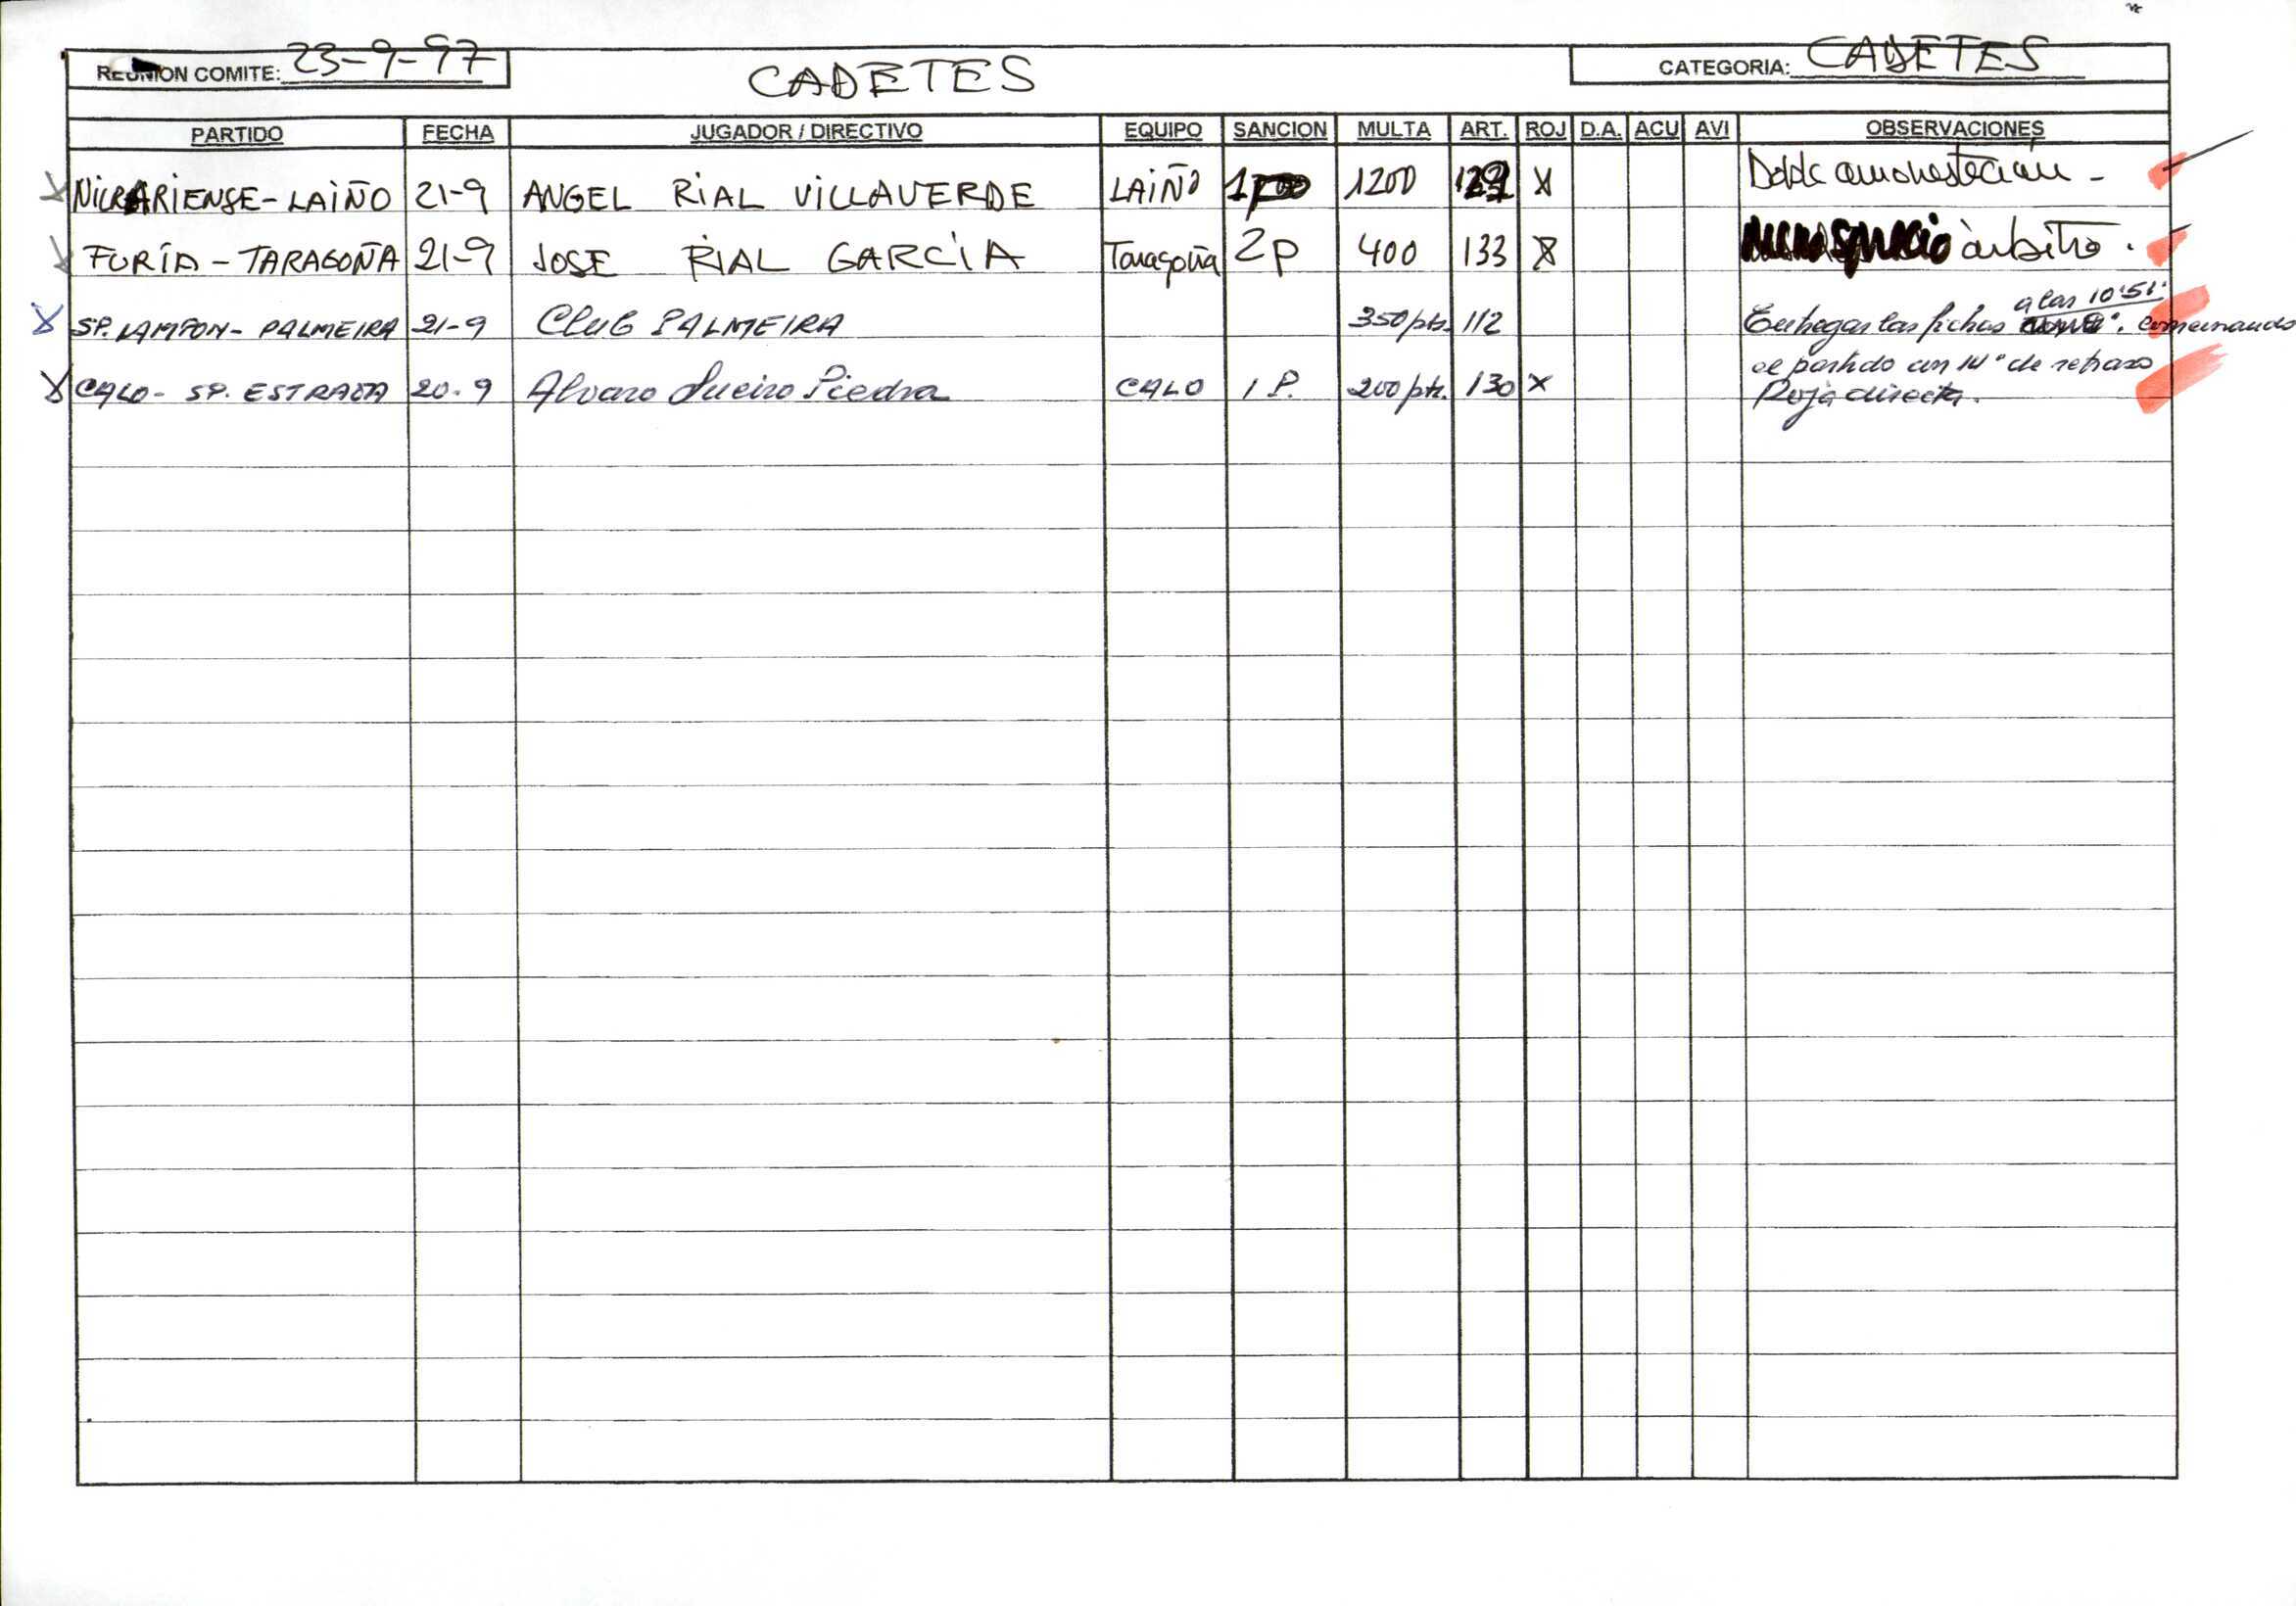 REUNION COMITE: 23-9-97 CADETES CATEGORIA: CADETES
PARTIDO FECHA JUGADOR / DIRECTIVO EQUIPO SANCION MULTA ART. ROJ D.A. ACU AVI OBSERVACIONES
X LAIÑO 21-9 ANGEL RIAL VILLAVERDE LAIÑO 1 1200 129 X Doble amonestación -
X FURÍA - TARAGOÑA 21-9 JOSE RIAL GARCÍA Taragoña 2P 400 133 X árbitro.
a las 10'51'
X SP. LAMPON - PALMEIRA 21-9 Club PALMEIRA 350 pts. 112 Entregar las fichas comenzando
el partido con 14' de retraso
X CALO - SP. ESTRADA 20-9 Alvaro Sueiro Piedra CALO 1 P. 200 pts. 130 X Roja directa.